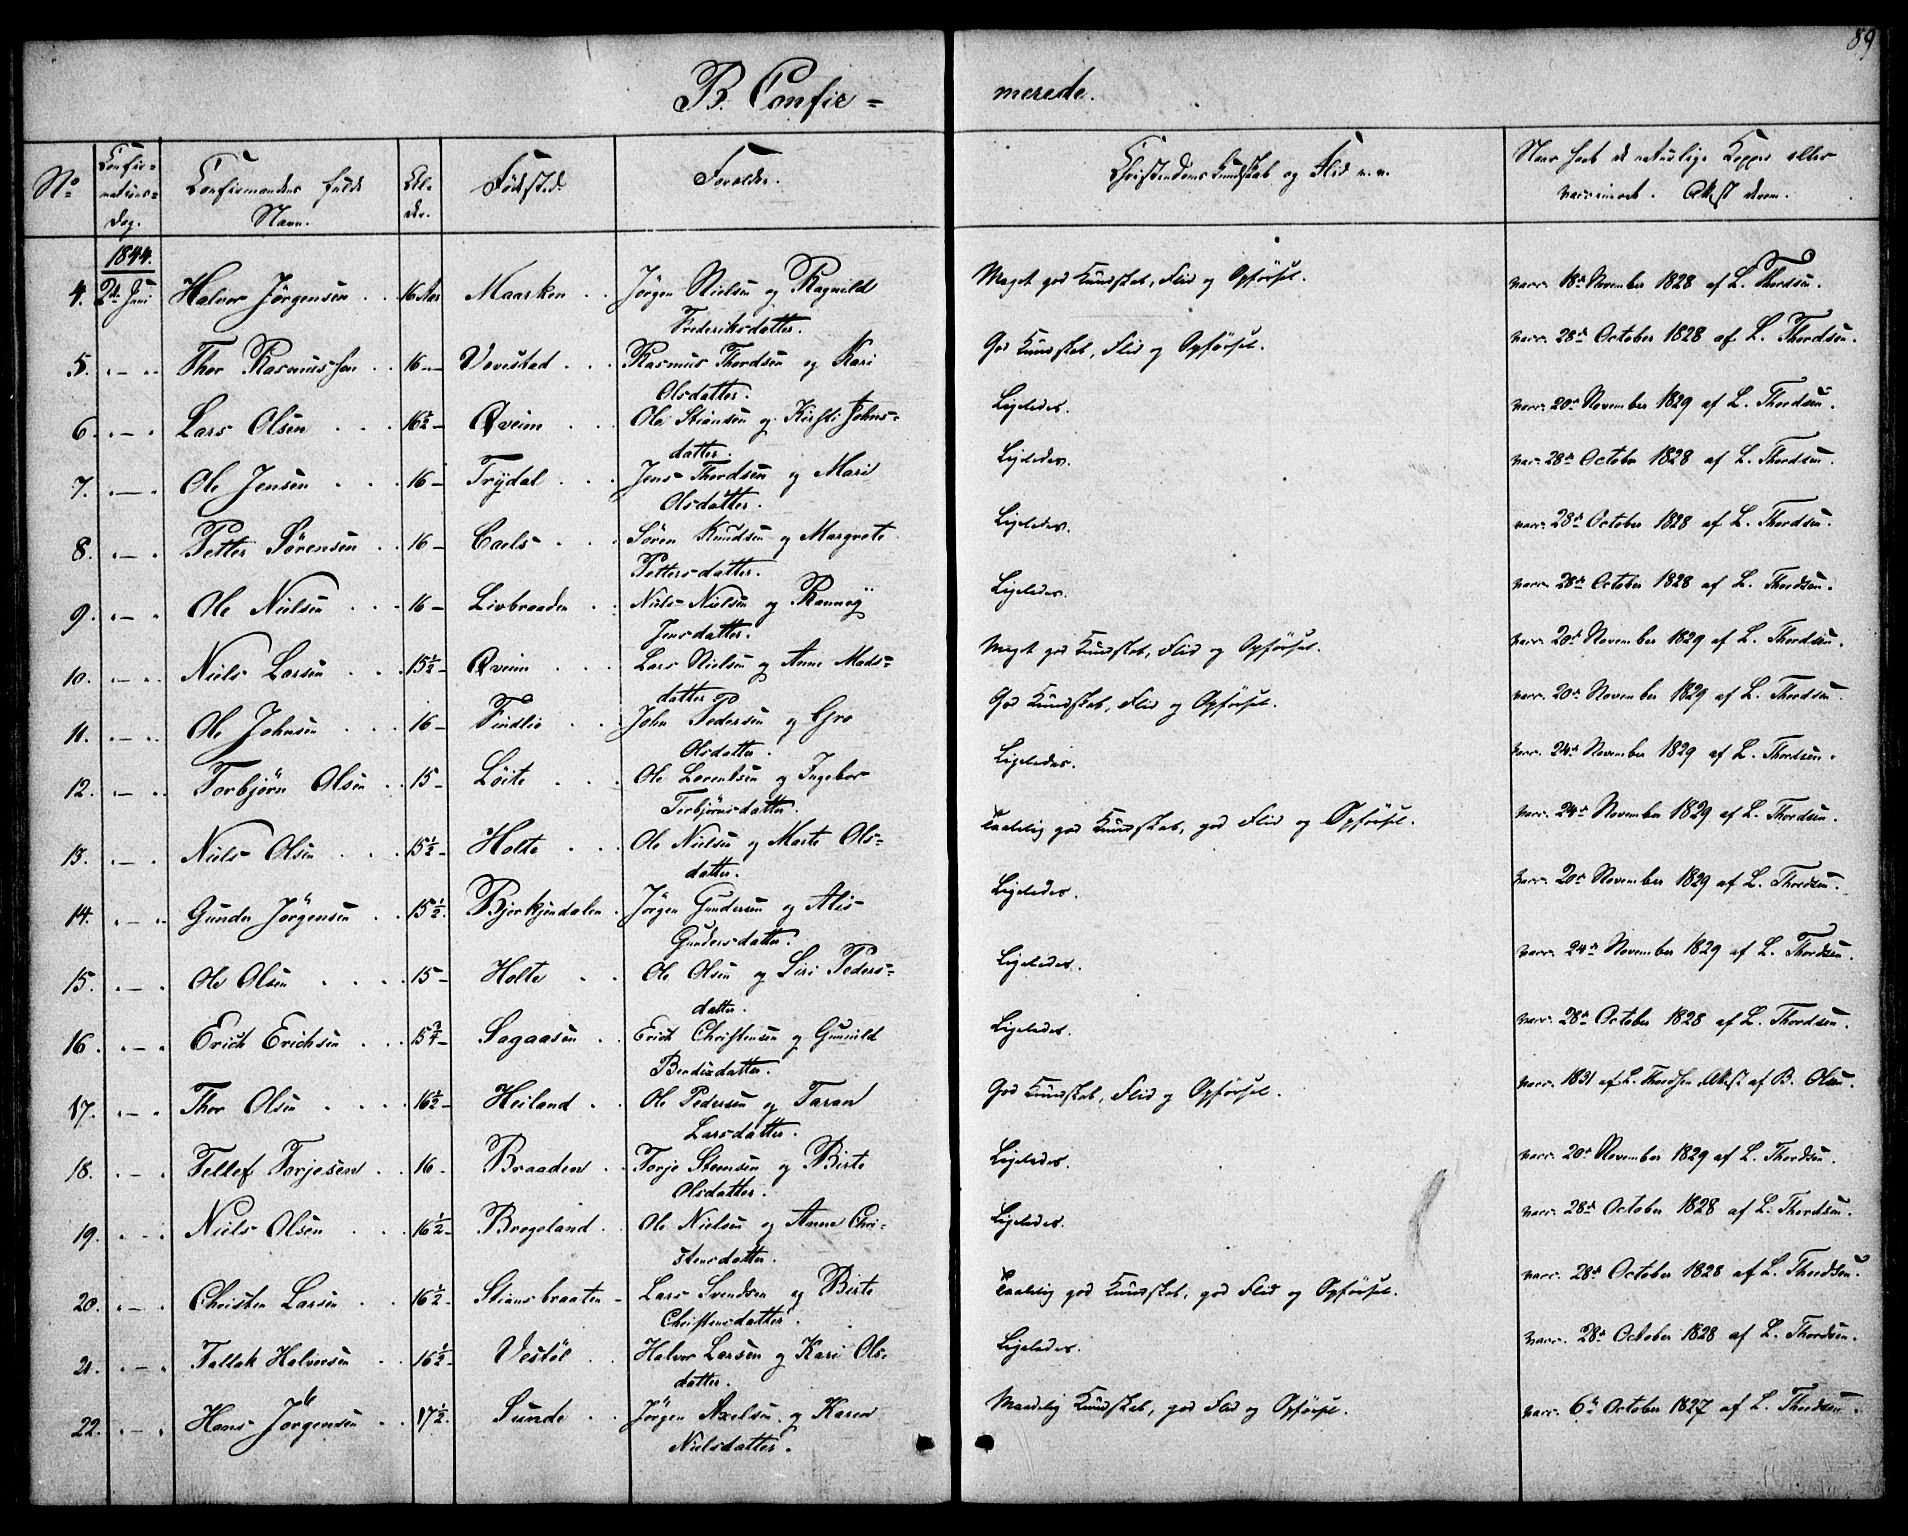 89
B. Confir= merede.
No
Confir=
mations=
dag.
Confirmandens fulde
Navn.
Al-
der.
Födested.
Forældre.
Christendoms Kundskab og Flid m. v.
Naar havt de naturlige Kopper eller
vaccineret. Attest derom.
1844.
4. 2den Juni Halvor Jörgensen . . 16 Aar Maarken . . Jörgen Nielsen og Ragnild Meget god Kundskab, Flid og Opförsel. vacc. 18de November 1828 af L. Thordsen.
Frederiksdatter.
5. Thor Rasmussen . . 16 Vovestad . . . Rasmus Thordsen og Kari God Kundskab, Flid og Opförsel. vacc. 28de October 1828 af L. Thordsen.
Olsdatter.
6. Lars Olsen . . . 16½ Qveim . . . Ole Stiansen og Kirsti Johns= Ligeledes. vacc. 20de November 1829 af L. Thordsen.
datter.
7. Ole Jensen . . . 16 Trydal . . . Jens Thordsen og Mari Ligeledes. vacc. 28de October 1828 af L. Thordsen.
Olsdatter.
8. Petter Sörensen . . 16 Caels . . . Sören Knudsen og Margrete Ligeledes. vacc. 28de October 1828 af L. Thordsen.
Pettersdatter.
9. Ole Nielsen . . . 16 Livbraaden . . Niels Nielsen og Rannöy Ligeledes. vacc. 28de October 1828 af L. Thordsen.
Jensdatter.
10. Niels Larsen . . . 15½ Qveim . . . Lars Nielsen og Anne Mads= Meget god Kundskab, Flid og Opförsel. vacc. 20de November 1829 af L. Thordsen.
datter.
11. Ole Johnsen . . . 16 Findlie . . . John Pedersen og Gro God Kundskab, Flid og Opförsel. vacc. 20de November 1829 af L. Thordsen.
Olsdatter.
12. Torbjörn Olsen . . 15 Löite . . . Ole Lorentsen og Ingebor Ligeledes. vacc. 24de November 1829 af L. Thordsen.
Torbjörnsdatter.
13. Niels Olsen . . . 15½ Holte . . . Ole Nielsen og Marte Ols= Taalelig god Kundskab, god Flid og Opförsel. vacc. 24de November 1829 af L. Thordsen.
datter.
14. Gunder Jörgensen . . 15½. Bjorkjendalen . Jörgen Gundersen og Alis Ligeledes. vacc. 20de November 1829 af L. Thordsen.
Gundersdatter.
15. Ole Olsen . . . . 15 Holte . . Ole Olsen og Siri Peders= Ligeledes. vacc. 24de November 1829 af L. Thordsen.
datter.
16. Erich Erichsen . . . 15¾ Sagaasen . . Erich Christensen og Gunild Ligeledes. vacc. 28de October 1828 af L. Thordsen.
Bendixdatter.
17. Thor Olsen . . . . 16½ Heiland . . Ole Pedersen og Taran God Kundskab, Flid og Opförsel. vacc. 1831 af L. Thordsen, Attest af B. Olsen.
Larsdatter.
18. Tellef Torjesen . . 16 Braaden . . Torje Steensen og Birte Ligeledes. vacc. 20de November 1829 af L. Thordsen.
Olsdatter.
19. Niels Olsen . . . 16½ Bregeland . . Ole Nielsen og Anne Chri= Ligeledes. vacc. 28de October 1828 af L. Thordsen.
stensdatter.
20. Christen Larsen . . 16½ Stiansbraaten Lars Svendsen og Birte Taalelig god Kundskab, god Flid og Opförsel. vacc. 28de October 1828 af L. Thordsen.
Christensdatter.
21. Tallak Halvorsen . . 16½ Vestöl . . Halvor Larsen og Kari Ols= Ligeledes. vacc. 28de October 1828 af L. Thordsen.
datter.
22. Hans Jörgensen . . 17½. Sunde . . Jörgen Axelsen og Karen Maadelig Kundskab, god Flid og Opförsel. vacc. 6te October 1827 af L. Thordsen.
Nielsdatter.